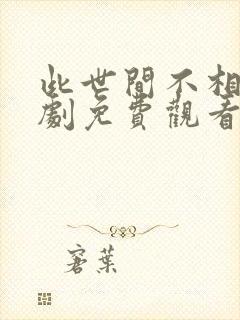 此世間不相
劇免費觀看
寄葉